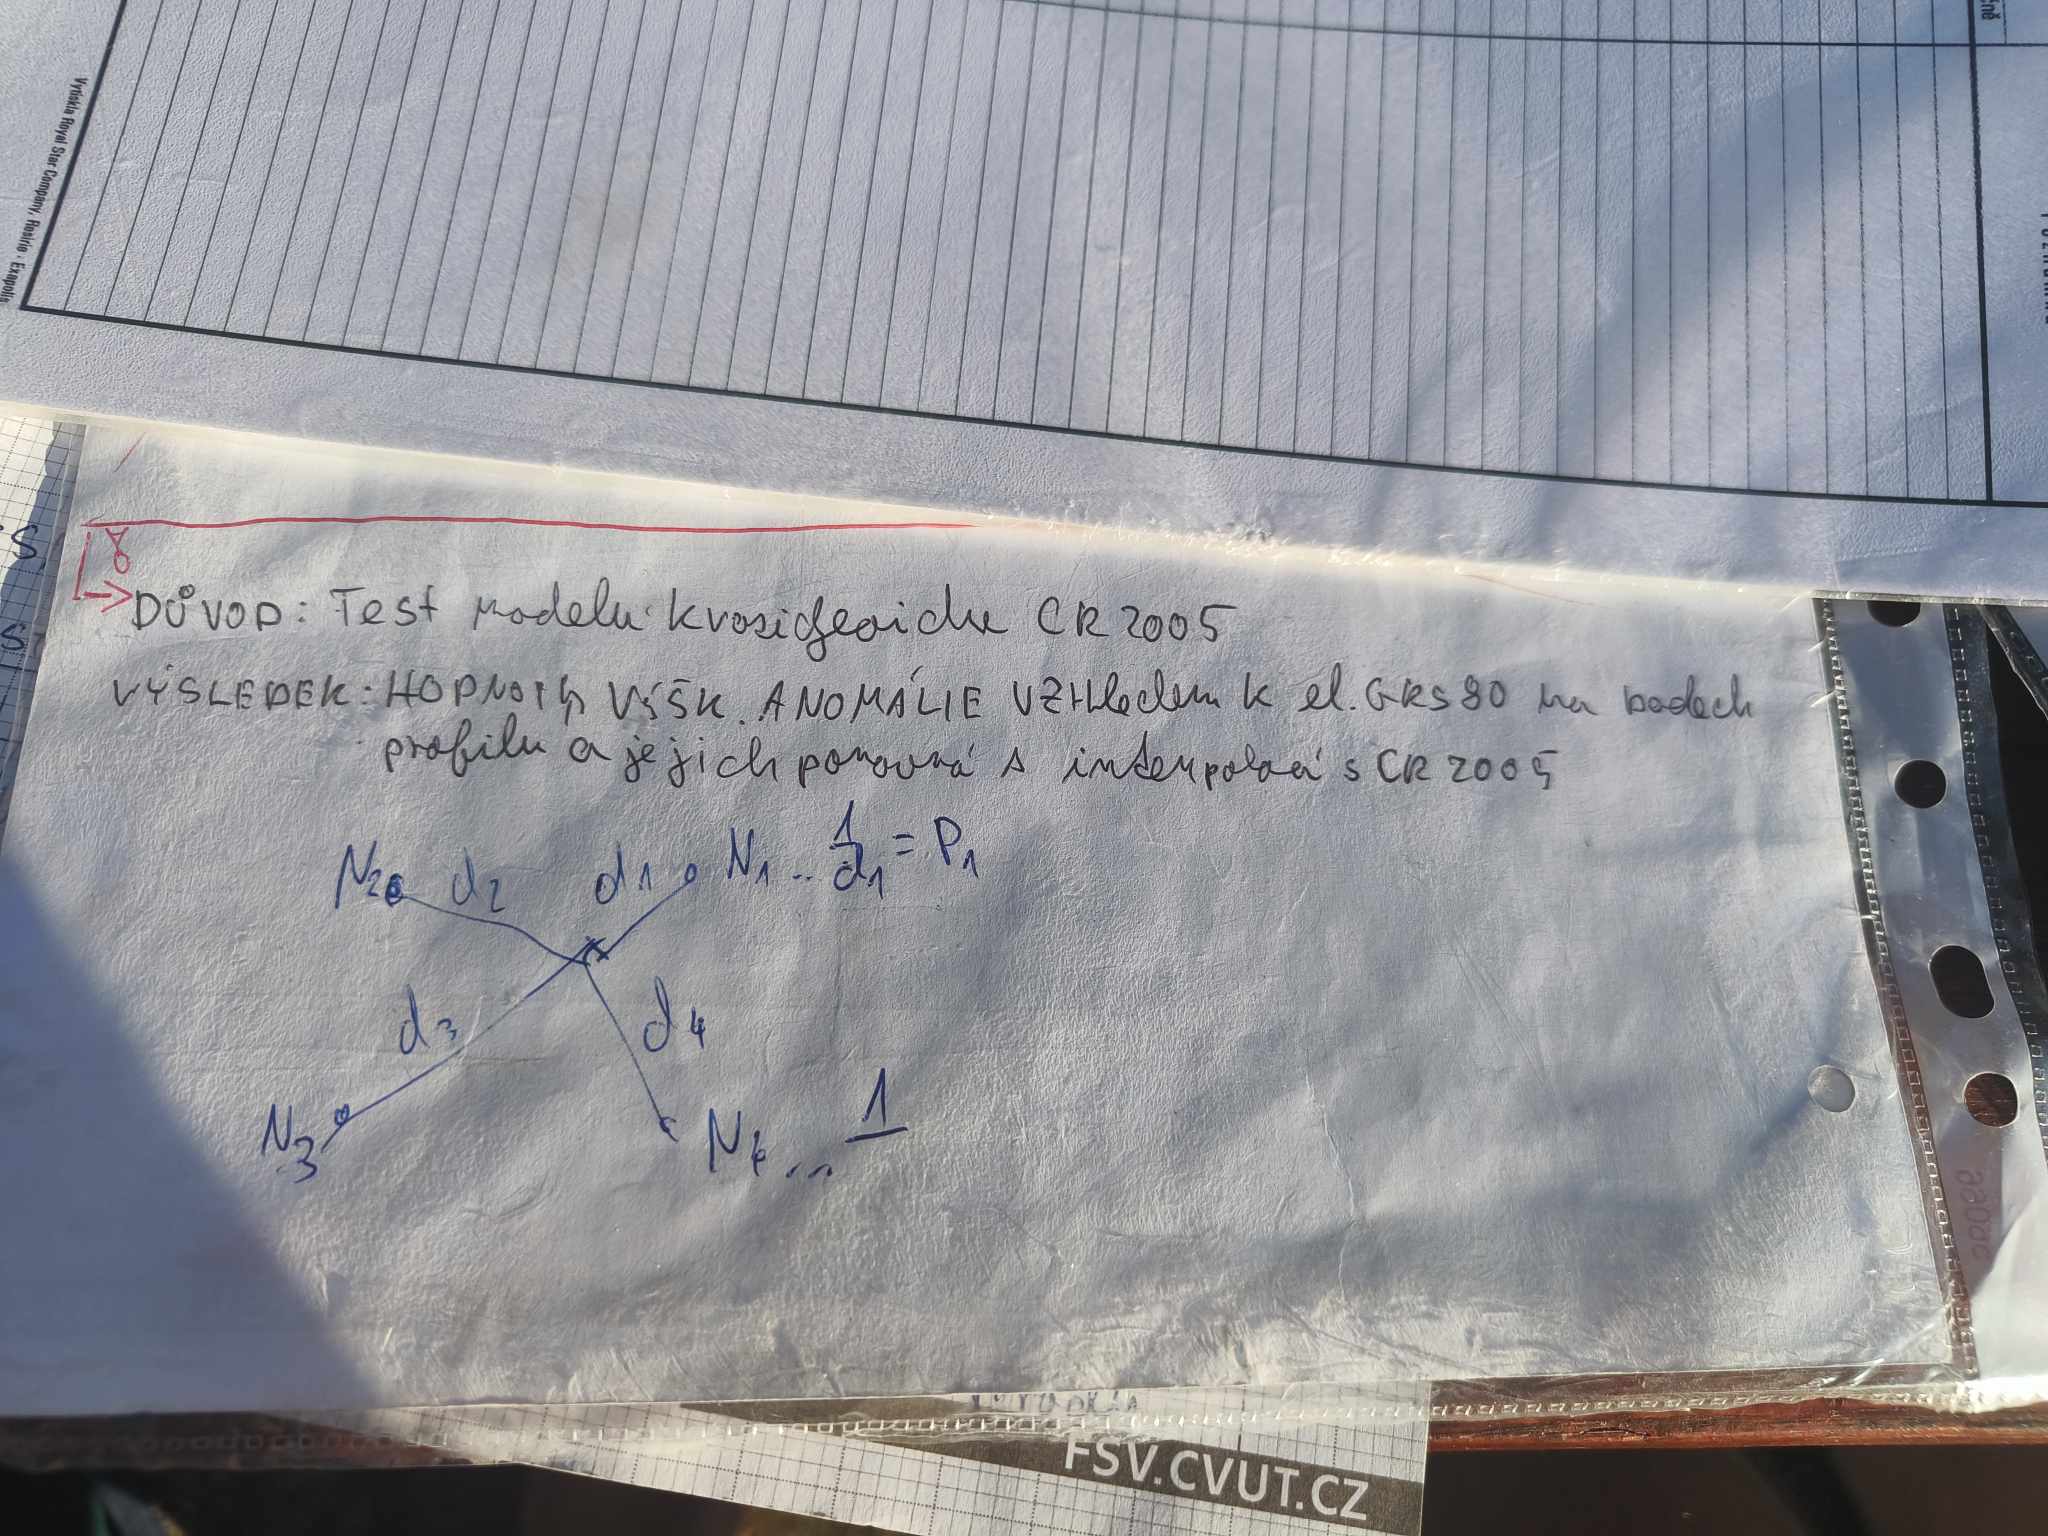 Vytiskla Royal Star Company, Rosirio - Exapolis
8
DŮVOD: Test modelu kvazigeoidu CR 2005
VÝSLEDEK: HODNOTY VÝŠK. ANOMÁLIE VZHledem k el. GRS 80 na bodech
profilu a jejich porovná s interpolací s CR 2005
N2 d2 d1 N1 .. 1/d1 = P1
d3 d4
N3 N4 ... 1
FSV.CVUT.CZ